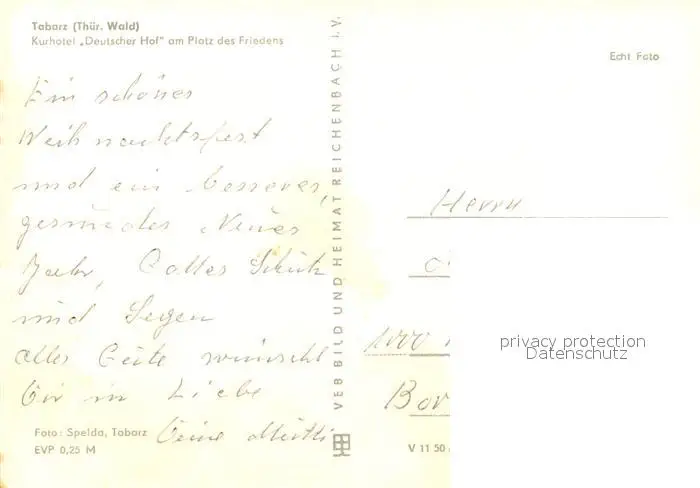 Tabarz (Thür. Wald)
Kurhotel „Deutscher Hof" am Platz des Friedens
Ein schönes
Weihnachtsfest
und ein besseres,
gesundes Neues
Jahr, Gottes Schutz
und Segen
alles Gute wünscht
Dir in Liebe
Deine Mutti
Foto: Spelda, Tabarz
EVP 0,25 M
VEB BILD UND HEIMAT REICHENBACH I.V.
Echt Foto
Herrn
1000
Bor
V 11 50
privacy protection
Datenschutz